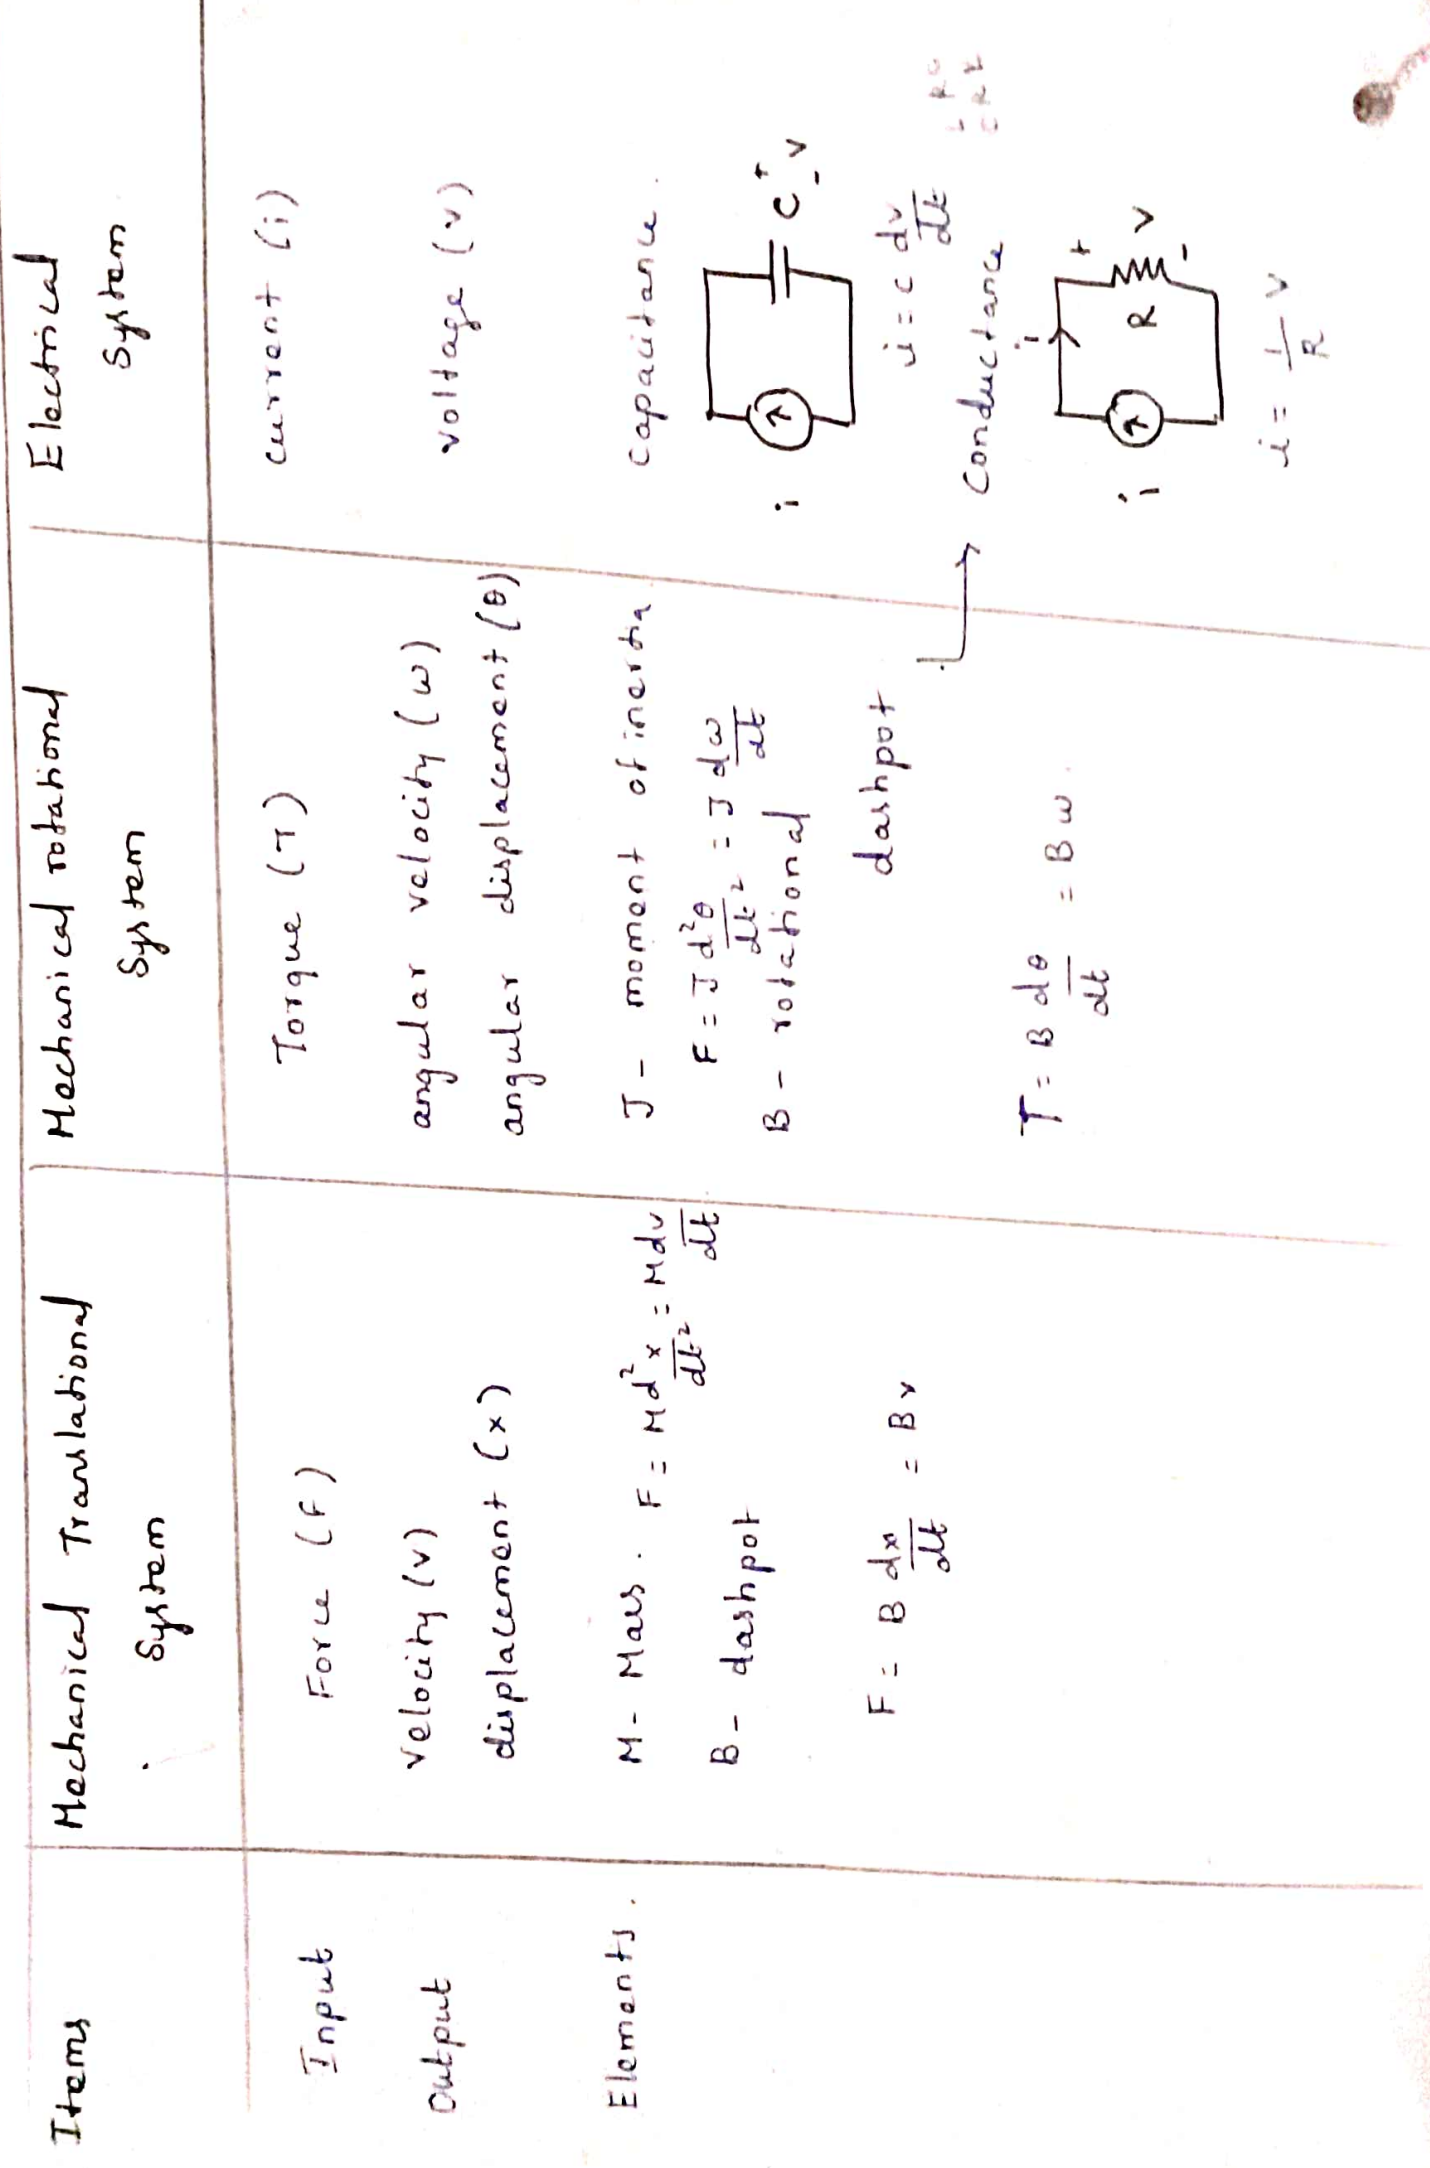 Items
Mechanical Translational
System
Mechanical rotational
System
Electrical
System
Input
Force (F)
Torque (T)
current (i)
Output
Velocity (v)
displacement (x)
angular velocity (ω)
angular displacement (θ)
voltage (v)
Elements.
M - Mass. F = M d²x/dt² = M dv/dt
B - dashpot
F = B dx/dt = Bv
J - moment of inertia
F = J d²θ/dt² = J dω/dt
B - rotational
dashpot
T = B dθ/dt = Bω.
capacitance.
i C + - v
i = c dv/dt
conductance
i i R + - v
i = 1/R v